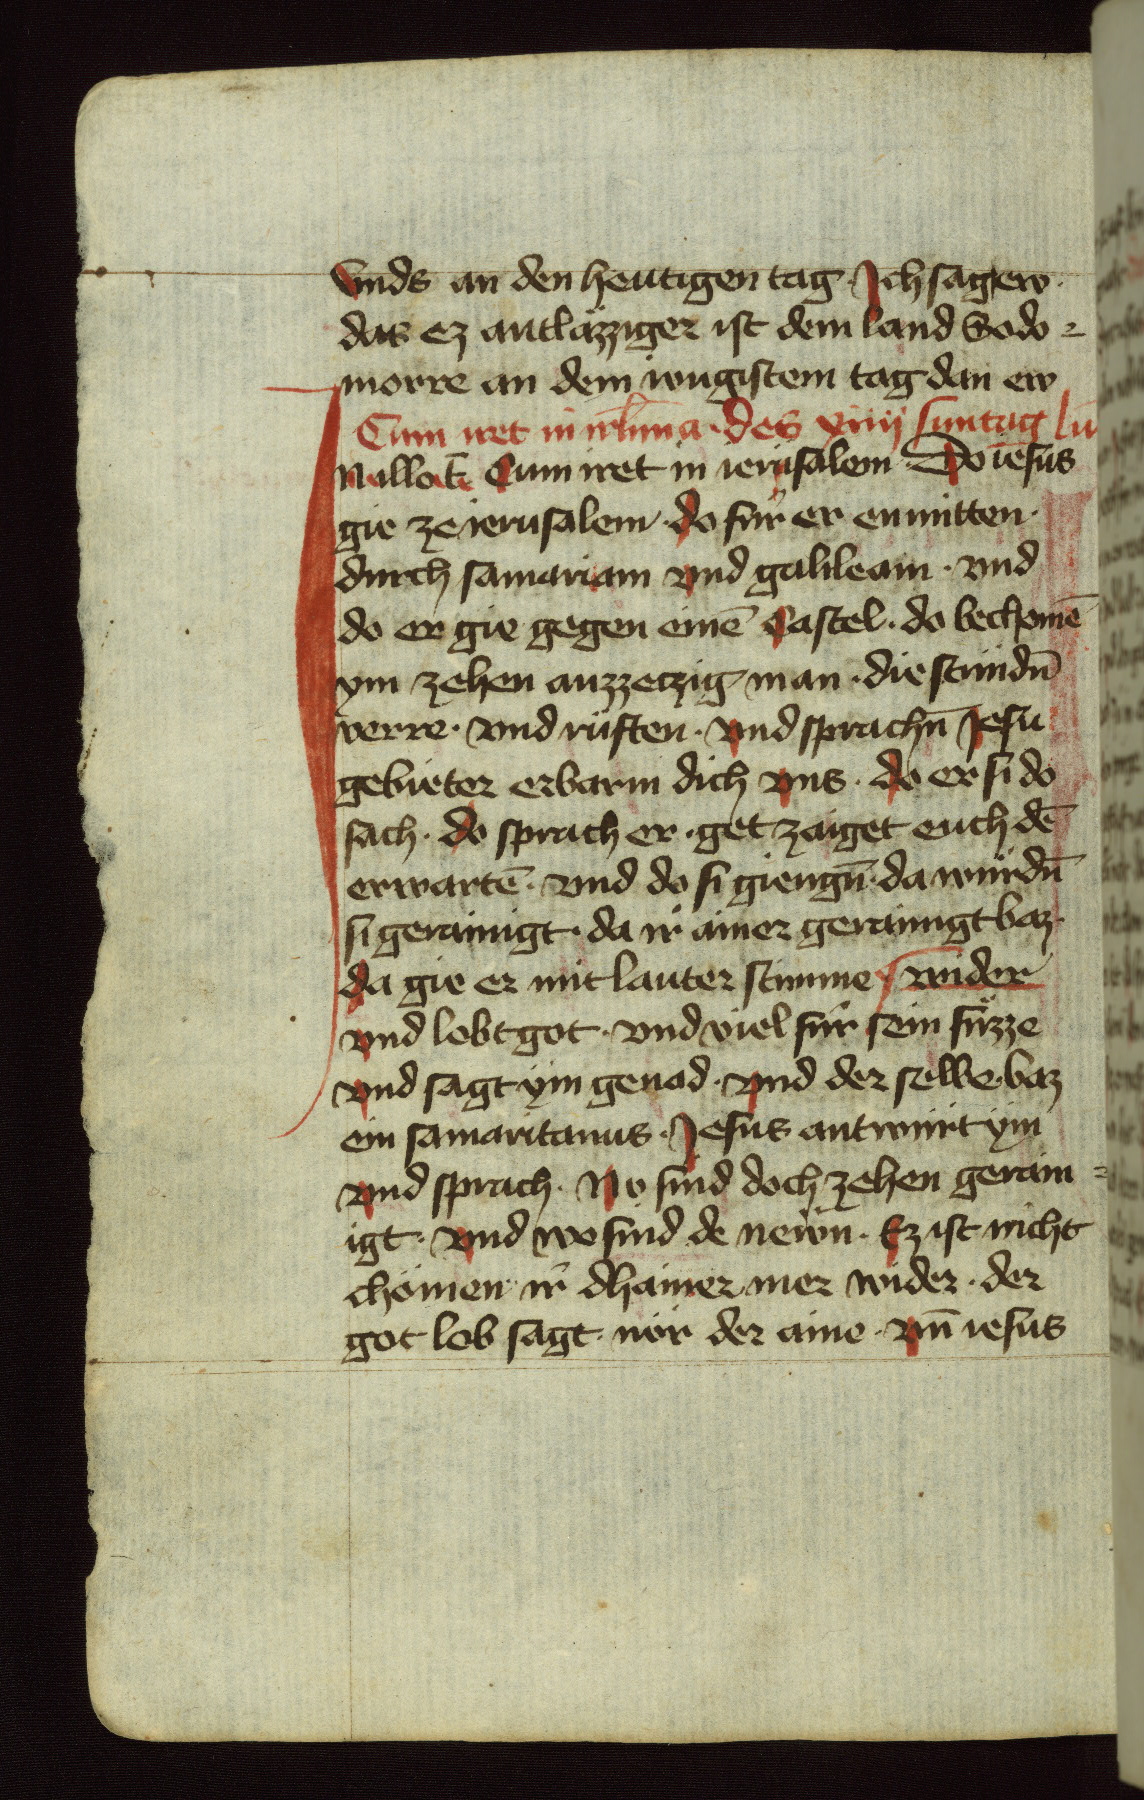 vnds an den heutigen tag. Ich sag ew.
das ez antläzziger ist dem land Sodo=
morre an dem iungistem tag dan ew
Cum iret in irl̄m a. des xiiij suntag lu
N allo t̄ Cum iret in ierusalem. Do iesus
gie ze ierusalem. do fur er enmitten.
durch samariam vnd galileam. vnd
do er gie gegen einē Castel. do bechomē
ym zehen auzzetzig man. die stundn̄
verre. vnd rüften. vnd sprachn̄ Jesu
gebieter erbarm dich vns. do er si do
sach. do sprach er. get zaiget euch dē
erwartē. vnd do si giengn̄. da wurdn̄
si gerainigt. da ir ainer gerainigt baz.
da gie er mit lauter stimme wider
vnd lobt got. vnd viel für sein füzze
vnd sagt ym genad. vnd der selbe baz
ein samaritanus. Jesus antwurt ym
vnd sprach. No sind doch zehen gerain=
igt. vnd wo sind de newn. Ez ist nicht
chömen ir dhainer mer wider. der
got lob sagt. nör der aine. vn̄ iesus